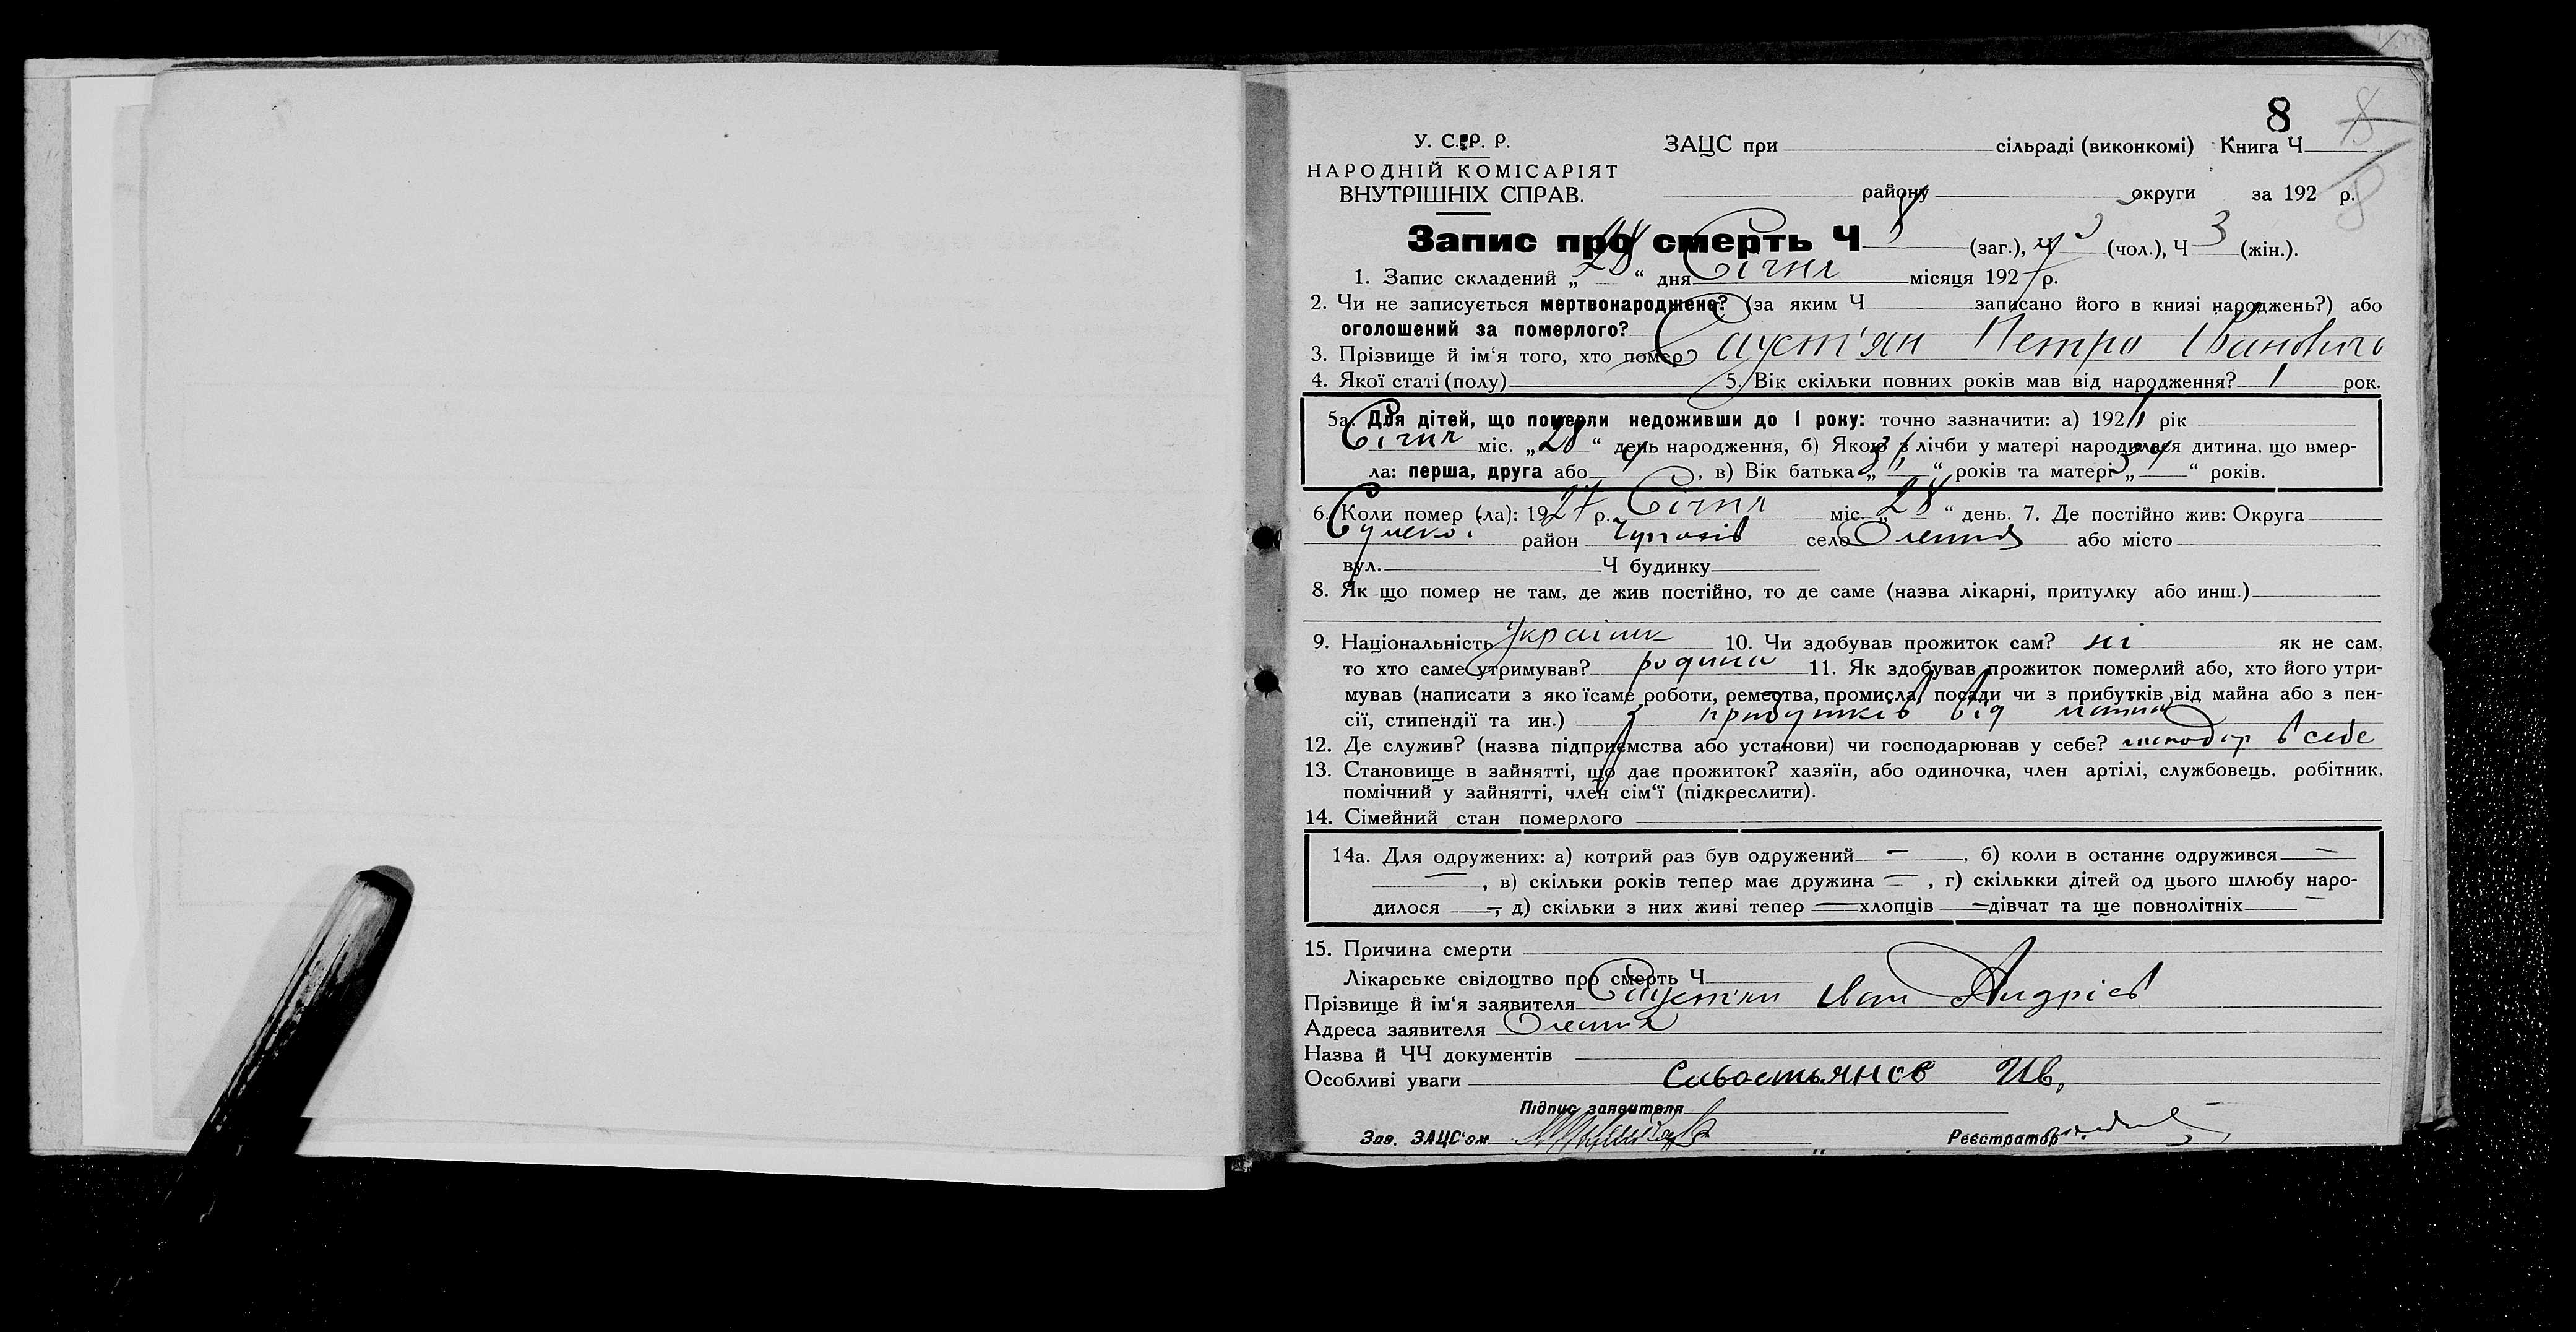 8
8
У. С. Р. Р. ЗАЦС при сільраді (виконкомі) Книга Ч
НАРОДНІЙ КОМІСАРІЯТ
ВНУТРІШНІХ СПРАВ. району округи за 192 р.
8
Запис про смерть Ч 8 (заг.), Ч (чол.), Ч 3 (жін.).
1. Запис складений „ 28 “ дня Січня місяця 1927 р.
2. Чи не записується мертвонароджене? (за яким Ч записано його в книзі народжень?) або
оголошений за померлого?
3. Прізвище й ім‘я того, хто помер Сауст'ян Петро Іванович
4. Якої статі (полу) 5. Вік скільки повних років мав від народження? 1 рок.
5а. Для дітей, що померли недоживши до 1 року: точно зазначити: а) 192 рік
Січня міс. „ 28 “ день народження, б) Якою з лічби у матері народилася дитина, що вмер-
ла: перша, друга або 4, в) Вік батька „ “ років та матері „ “ років.
6. Коли помер (-ла): 1927 р. Січня міс. „ 28 “ день. 7. Де постійно жив: Округа
район село або місто
вул. Ч будинку
8. Як що помер не там, де жив постійно, то де саме (назва лікарні, притулку або инш.)
9. Національність україник 10. Чи здобував прожиток сам? ні як не сам,
то хто саме утримував? родина 11. Як здобував прожиток померлий або, хто його утри-
мував (написати з яко їсаме роботи, ремества, промисла, посади чи з прибутків від майна або з пен-
сії, стипендії та ин.) з прибутків від майна
12. Де служив? (назва підприємства або установи) чи господарював у себе? в себе
13. Становище в зайнятті, що дає прожиток? хазяїн, або одиночка, член артілі, службовець, робітник,
помічний у зайнятті, член сім‘ї (підкреслити).
14. Сімейний стан померлого
14а. Для одружених: а) котрий раз був одружений —, б) коли в останнє одружився —
—, в) скільки років тепер має дружина —, г) скількки дітей од цього шлюбу наро-
дилося —, д) скільки з них живі тепер — хлопців — дівчат та ще повнолітніх —
15. Причина смерти
Лікарське свідоцтво про смерть Ч
Прізвище й ім‘я заявителя Сауст'ян Іван Андрієв
Адреса заявителя
Назва й ЧЧ документів
Особливі уваги Севостьянов Ив,
Підпис заявителя
Зав. ЗАЦС‘ом Реєстратор